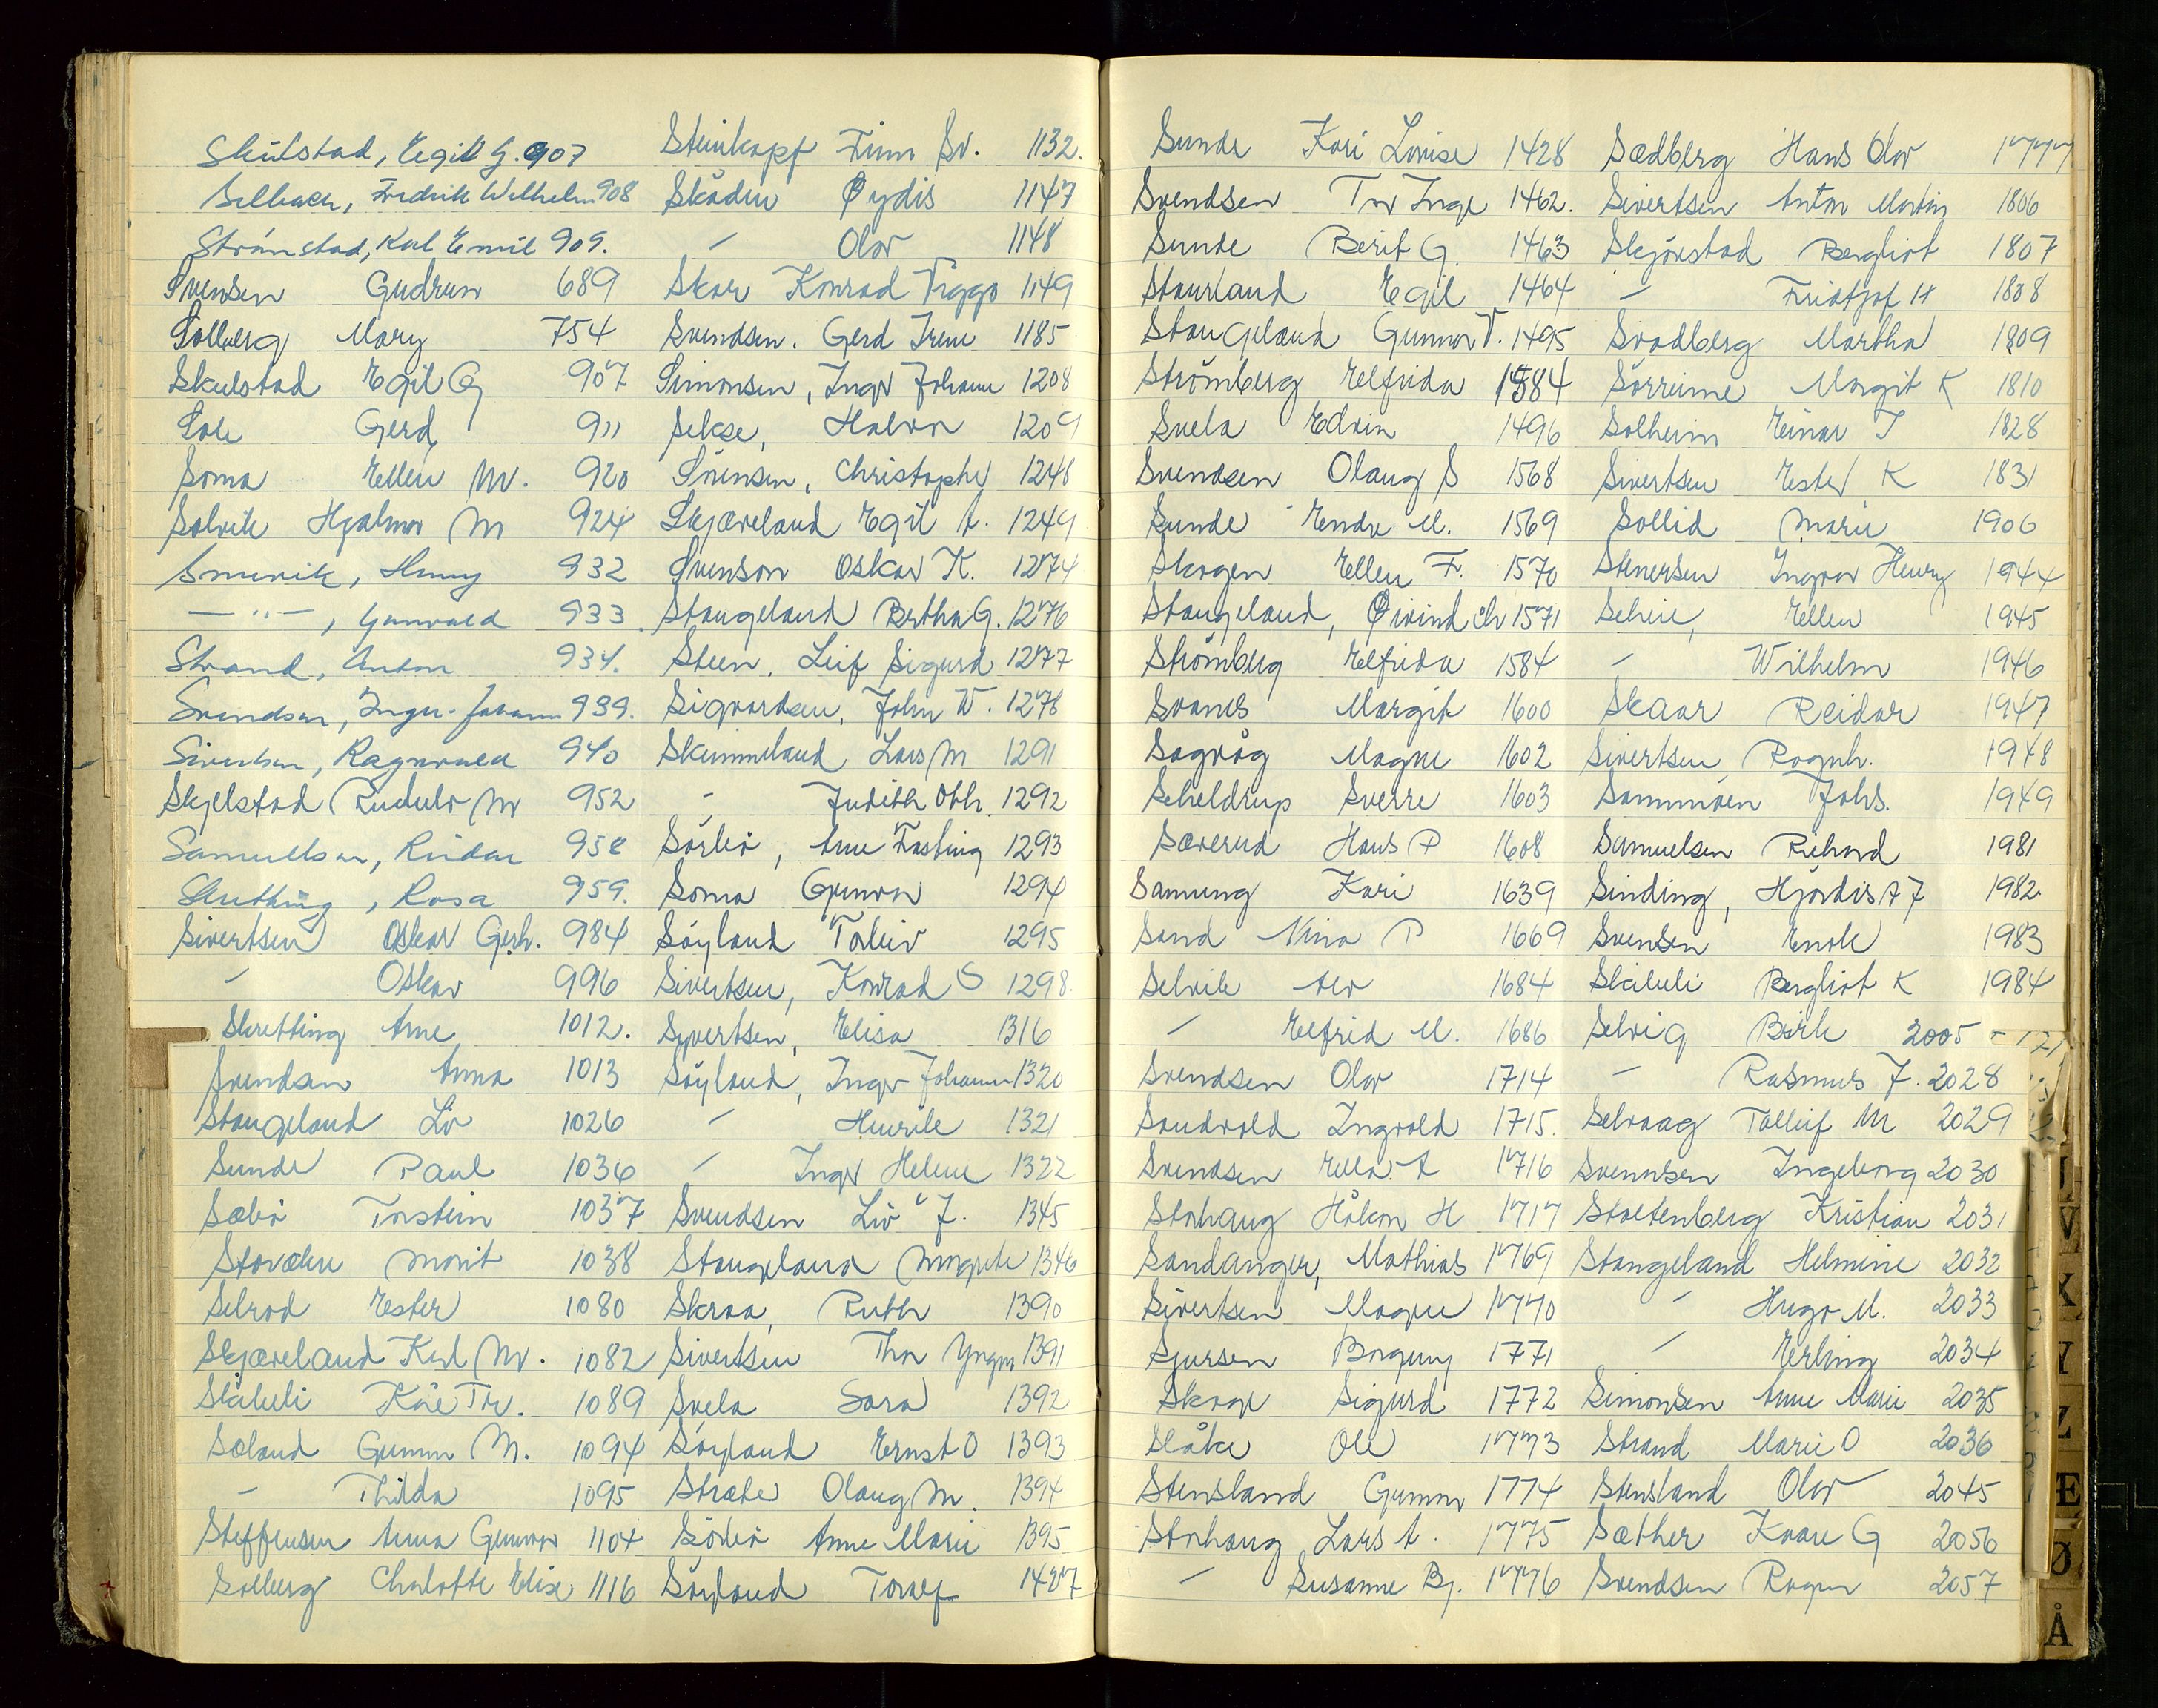 Skulstad, Egil G. 907
Selbach, Fredrik Wilhelm 908
Strömstad, Karl Emil 909.
Svensen Gudrun 689
Solberg Mary 754
Skulstad Egil G 907
Sole Gerd 911
Soma Ellen M. 920
Solvik Hjalmar M 924
Smevik, Henny 932
— " —, Gunvald 933
Strand, Anton 934.
Svendsen, Inger Johanne 939.
Sivertsen, Ragnvald 940
Skjelstad Rudolv M 952
Samuelsen, Reidar 958
Skretting, Rosa 959.
Sivertsen Oskar Gerh. 984
- Oskar 996
Skretting Arne 1012.
Svendsen Anna 1013
Stangeland Liv 1026
Sunde Paul 1036
Sæbö Torstein 1037
Stovdehn Marit 1038
Selrod Ester 1080
Skjæveland Karl M. 1082
Skibeli Kåre Th. 1089
Sæland Gunnar M. 1094
- Thilda 1095
Steffensen Anna Gunvor 1104
Solberg Charlotte Elise 1116
Steinkopf Finn Sv. 1132.
Skådin Øydis 1147
- Olav 1148
Skar Konrad Viggo 1149
Svendsen. Gerd Irene 1185
Simonsen, Inger Johanne 1208
Sekse, Halvor 1209
Sörensen, Christopher 1248
Skjæveland Egil A. 1249
Svenson Oskar K. 1274
Stangeland Bertha G. 1276
Steen, Leif Sigurd 1277
Sigvartsen, John W. 1278
Skimmeland Lars M 1291
- Judith Oth. 1292
Sörbö, Arne Fasting 1293
Soma Gunvor 1294
Söyland Torleiv 1295
Sivertsen, Konrad S 1298.
Syvertsen, Elisa 1316
Söyland, Inger Johanne 1320
- Henrik 1321
- Inger Helene 1322
Svendsen Liv J. 1345
Stangeland Margrete 1346
Skraa, Ruth 1390
Sivertsen Thor Yngve 1391
Svela Sara 1392
Söyland Ernst O 1393
Stræte Olaug M. 1394
Sörbö Anne Marie 1395
Söyland Toralf 1427
Sunde Kari Lovise 1428
Svendsen Tor Inge 1462.
Sunde Berit G. 1463
Staurland Egil 1464
Stangeland Gunnar T. 1495
Strömberg Elfrida 1584
Svela Edvin 1496
Svendsen Olaug S 1568
Sunde Endre M. 1569
Skogen Ellen F. 1570
Stangeland, Øivind Chr 1571
Strömberg Elfrida 1584
Svanes Margit 1600
Sagvåg Magne 1602
Scheldrup Sverre 1603
Sæverud Hans P 1608
Samung Kari 1639
Sand Nina P 1669
Selvik Alv 1684
- Elfrid M. 1686
Svendsen Olav 1714
Sandvold Ingvald 1715.
Svendsen Ella A 1716
Storhaug Håkon H 1717
Sandanger, Mathias 1769
Sivertsen Magne 1770
Sjursen Borgny 1771
Skoge Sigurd 1772
Slåke Ole 1773
Stensland Gunnar 1774
Storhaug Lars A. 1775
- Susanne Bj. 1776
Sædberg Hans Olav 1777
Sivertsen Anton Martin 1806
Skjörestad Bergliot 1807
- Fridtjof H 1808
Svadberg Martha 1809
Sörreime Margit K 1810
Solheim Einar J 1828
Sivertsen Ester K 1831
Sollid Marie 1906
Stenersen Ingvar Henry 1944
Scheie, Ellen 1945
- Wilhelm 1946
Skaar Reidar 1947
Sivertsen Ragnh. 1948
Sammuen Johs. 1949
Samuelsen Richard 1981
Sinding, Hjördis A J 1982
Svensen Enok 1983
Skibeli Bergliot K 1984
Selvig Birk 2005
- Rasmus J. 2028
Selvaag Tolleif M 2029
Svennsen Ingeborg 2030
Stoltenberg Kristian 2031
Stangeland Helmine 2032
- Hugo M. 2033
- Erling 2034
Simonsen Anne Marie 2035
Strand Marie O 2036
Stensland Olav 2045
Sæther Kaare G 2056
Svendsen Ragna 2057
V
X
Y
Z
Æ
Ø
Å